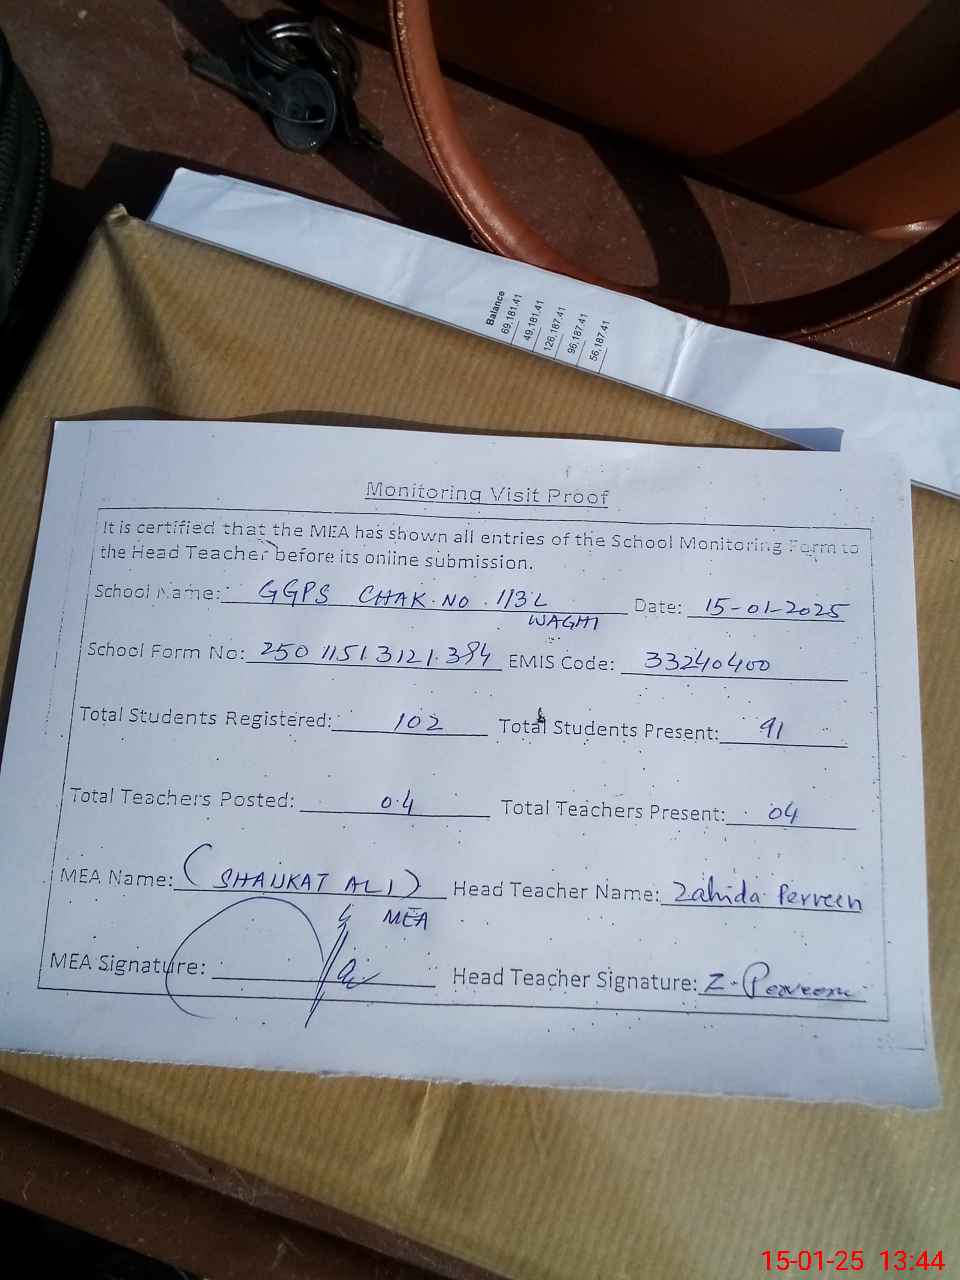 Balance
69,181.41
49,181.41
126,187.41
96,187.41
56,187.41
Monitoring Visit Proof
It is certified that the MEA has shown all entries of the School Monitoring Form to
the Head Teacher before its online submission.
School Name: GGPS CHAK.NO.113L Date: 15-01-2025
WAGHI
School Form No: 250 1151.3121.384 EMIS Code: 33240400
Total Students Registered: 102 Total Students Present: 91
Total Teachers Posted: 04 Total Teachers Present: 04
MEA Name: (SHAUKAT ALI) Head Teacher Name: Zahida Perveen
MEA
MEA Signature: Head Teacher Signature: Z. Perveen
15-01-25 13:44